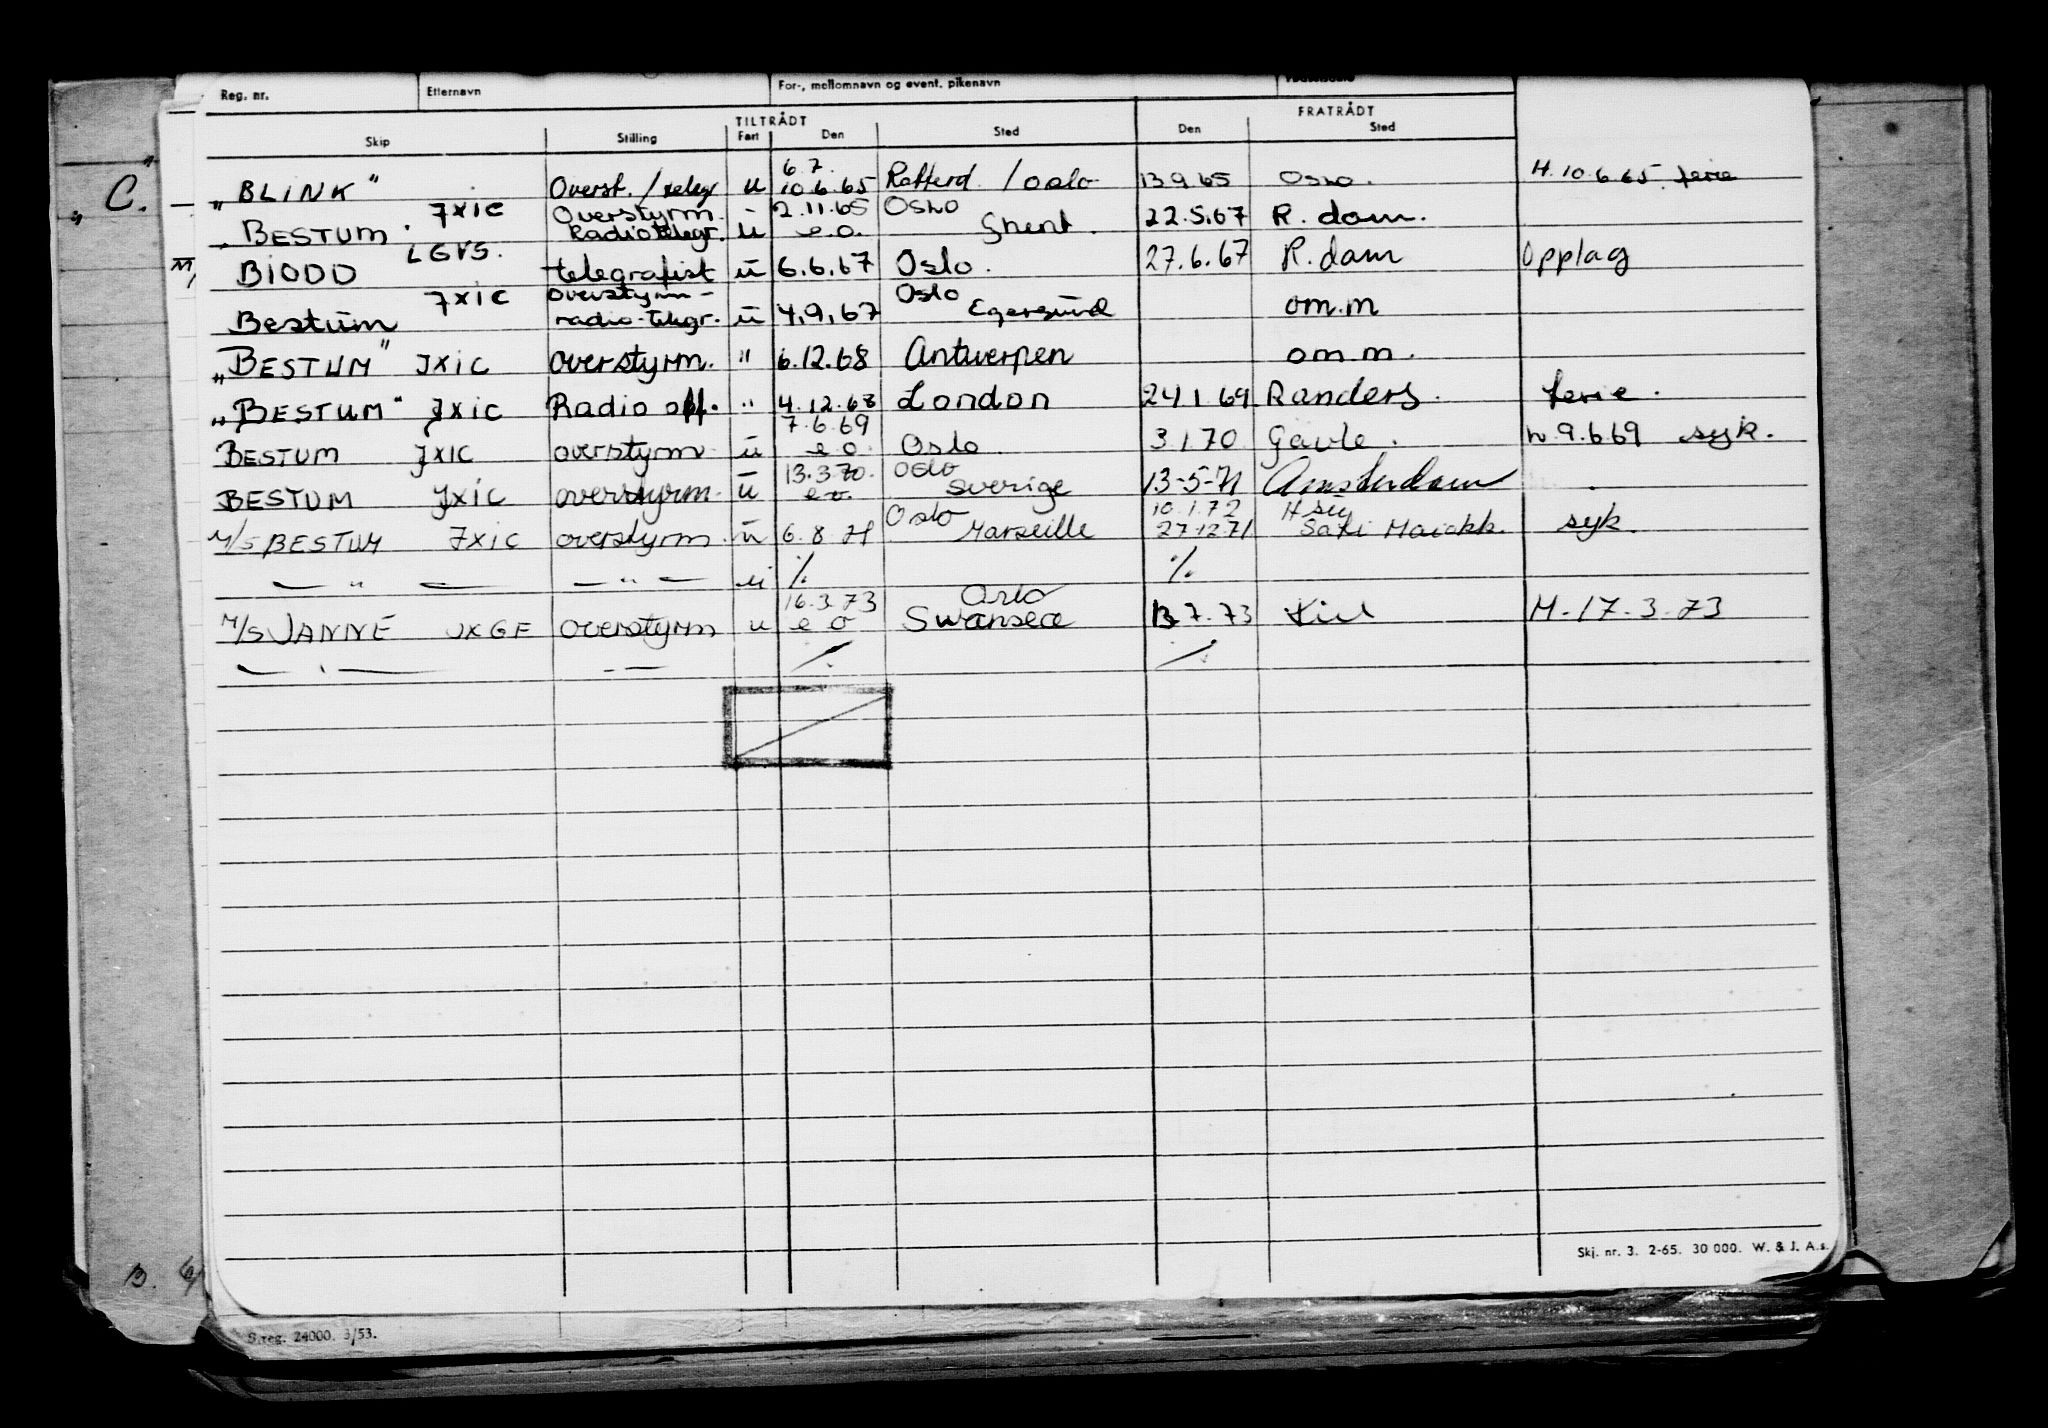 Reg. nr. Etternavn For-, mellomnavn og event. pikenavn
TILTRÅDT FRATRÅDT
Skip Stilling Fart Den Sted Den Sted
"C."
6.7.
"BLINK" Overst./telegr u 10.6.65 / Oslo 13.9.65 Oslo. H. 10.6.65. ferie
JXIC Overstyrm. 2.11.65 Oslo
BESTUM. Radiotelegr. u e.o. Ghent. 22.5.67 R. dam.
M/ BIODD LGVS. telegrafist u 6.6.67 Oslo. 27.6.67 R. dam Opplag
JXIC overstyrm- Oslo
Bestum radio-telegr. u 4.9.67 Egersund om.m
"BESTUM" JXIC overstyrm. " 6.12.68 Antwerpen om m.
"BESTUM" JXIC Radio off. " 4.12.68 London 24.1.69 Randers. ferie.
7.6.69
BESTUM JXIC overstyrm. u e o Oslo 3.1.70 Gavle. h. 9.6.69 syk.
13.3.70. Oslo
BESTUM JXIC overstyrm. u e o. Sverige 13-5-71 Amsterdam
Oslo 10.1.72
M/S BESTUM JXIC overstyrm. u 6.8.71 Marseille 27.12.71 syk.
— " — — " — u % %
16.3.73 Oslo
M/S JANNE JXGF overstyrm u e o Swansea 13.7.73 Kiel H-17.3.73
B.
Skj. nr. 3. 2-65. 30 000. W. & J. A.s.
S.reg. 24000. 3/53.